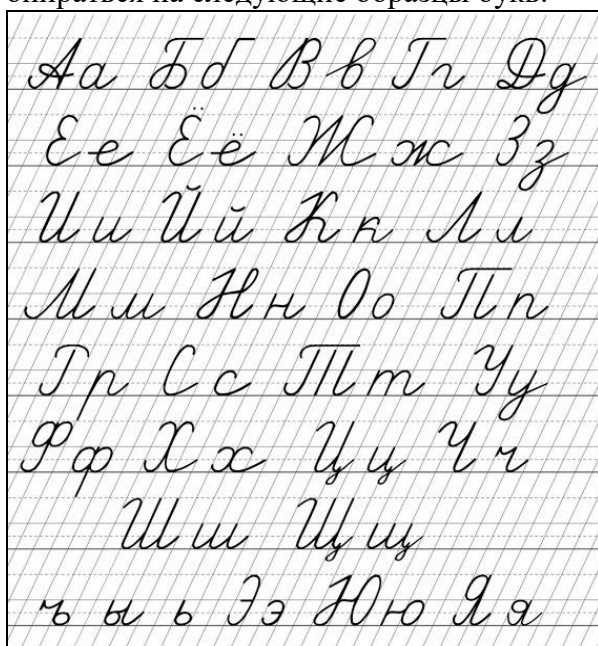 опираться на следующие образцы букв:
Аа Бб Вв Гг Дд
Ее Ёё Жж Зз
Ии Йй Кк Лл
Мм Нн Оо Пп
Рр Сс Тт Уу
Фф Хх Цц Чч
Шш Щщ
ъ ы ь Ээ Юю Яя